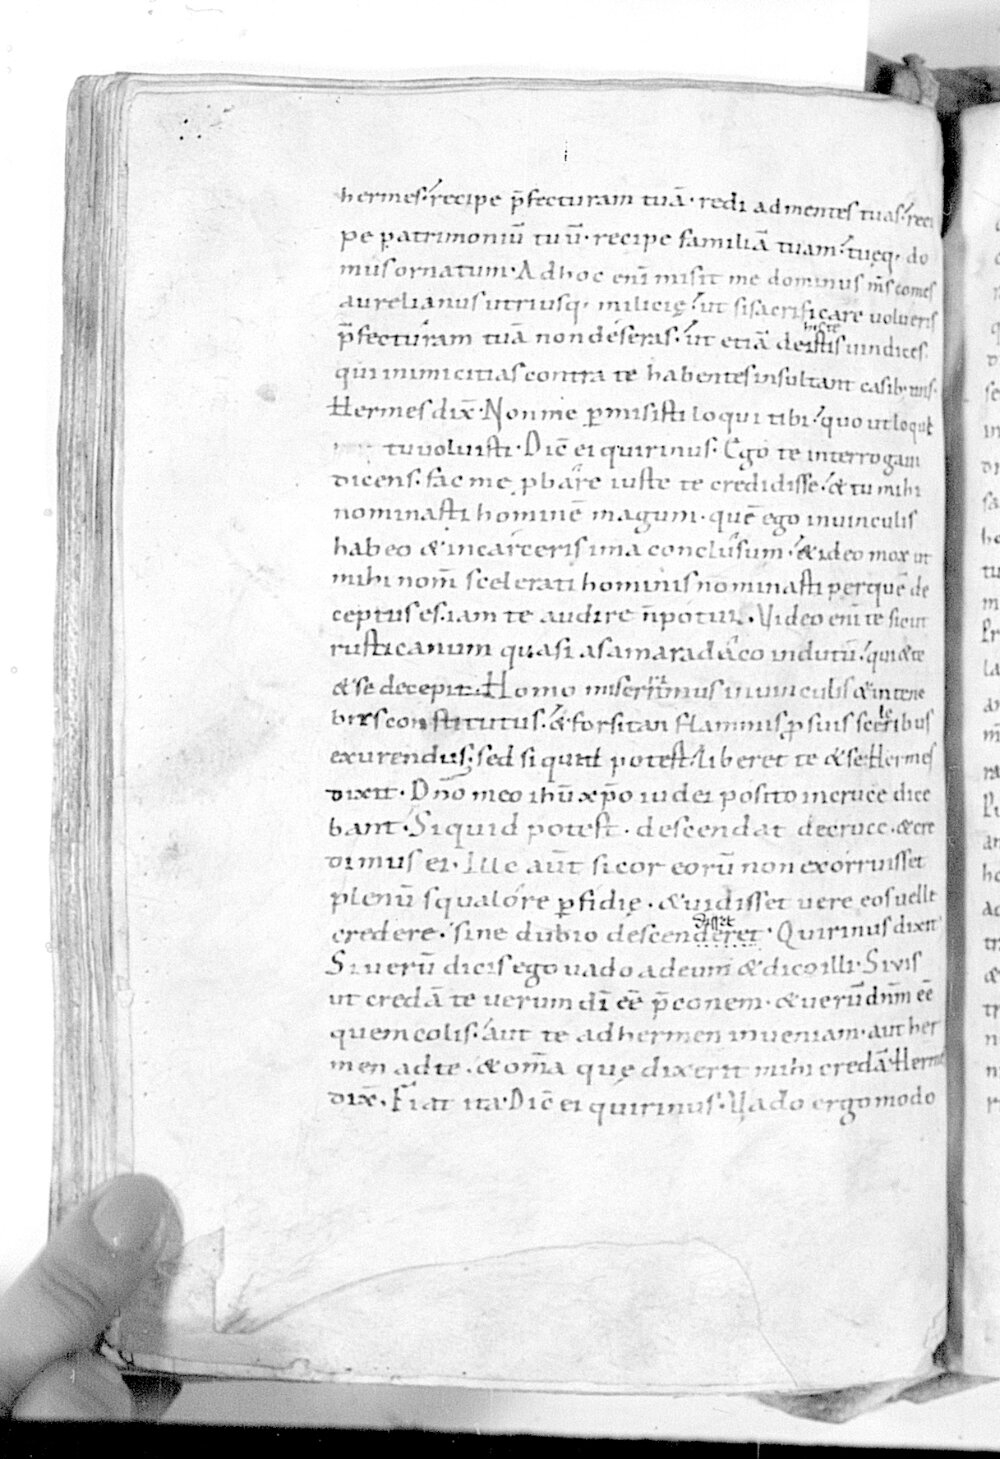 hermes·recipe p̄fecturam tuā·redi ad mentes tuas·reci
pe patrimoniū tuū·recipe familiā tuam·tuęq· do
mus ornatum·Ad hoc eni misit me dominus m̄s comes
aurelianus utriusq· milicię·ut si sacrificare uolueris
p̄fecturam tuā non deseras·ut etiā de istis uindices
qui inimicitias contra te habentes insultant casib· tuis·
Hermes dix̄·Non me permisisti loqui tibi·quo ut loqut
tu uoluisti·Dic̄ ei quirinus·Ego te interrogaui
dicens·fac me p̱bare iuste te credidisse·& tu mihi
nominasti hominē magum·quē ego in uinculis
habeo & in carceris ima conclusum·& ideo mox ut
mihi nom̄ scelerati hominis nominasti per quē de
ceptus es·iam te audire n̄ potui·Video eni te sicut
rusticanum quasi a samaradaco indutū·qui & te
& se decepit·Homo miserrimus in uinculis & in tene
bris constitutus·& forsitan flammis p̱ suis sceleribus
exurendus·sed si quid potest·liberet te & se·Hermes
dixit·Dn̄o meo ihū xp̄o iudei posito in cruce dice
bant·Si quid potest·descendat de cruce·& cre
dimus ei·Ille aūt si cor eorū non exorruisset
plenū squalore perfidię·& uidisset uere eos uelle
credere·sine dubio descenderet·Quirinus dixit
Si uerū dicis ego uado ad eum & dico illi·Si uis
ut credā te uerum dī eē p̄conem·& uerū dn̄m eē
quem colis·aut te ad hermen inueniam·aut her
men ad te·& om̄a quę dixerit mihi credā·Herm
dix̄·Fiat ita·Dic̄ ei quirinus·Vado ergo modo